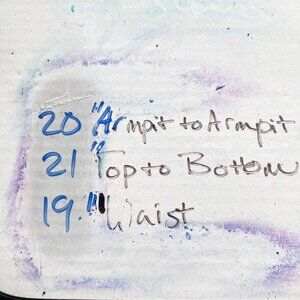 20" Armpit to Armpit
21" Top to Bottom
19." Waist